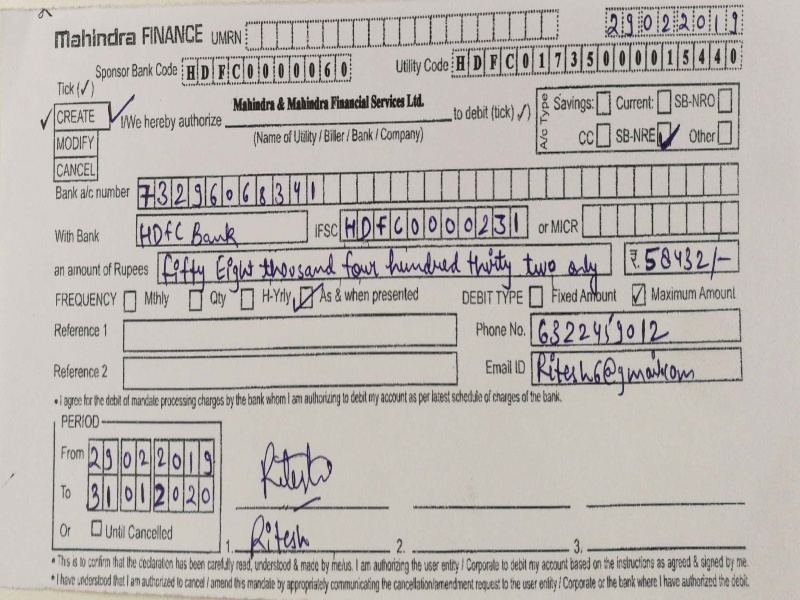 Mahindra FINANCE UMRN 29022019
Sponsor Bank Code HDFC0000060 Utility Code HDFC01735000015440
Tick (✓)
CREATE ✓ I/We hereby authorize Mahindra & Mahindra Financial Services Ltd. to debit (tick ✓) A/c Type Savings: Current: SB-NRO
MODIFY (Name of Utility / Biller / Bank / Company) CC SB-NRE ✓ Other
CANCEL
Bank a/c number 73296068341
With Bank HDFC Bank IFSC HDFC0000231 or MICR
an amount of Rupees fifty Eight thousand four hundred thirty two only ₹. 58432/-
FREQUENCY Mthly Qty H-Yrly ✓ As & when presented DEBIT TYPE Fixed Amount ✓ Maximum Amount
Reference 1 Phone No. 6322459012
Reference 2 Email ID Ritesh6@gmail.com
• I agree for the debit of mandate processing charges by the bank whom I am authorizing to debit my account as per latest schedule of charges of the bank.
PERIOD
From 29022019
To 31012020 Ritesh
Or Until Cancelled 1. Ritesh 2. 3.
• This is to confirm that the declaration has been carefully read, understood & made by me/us. I am authorizing the user entity / Corporate to debit my account based on the instructions as agreed & signed by me.
• I have understood that I am authorized to cancel / amend this mandate by appropriately communicating the cancellation/amendment request to the user entity / Corporate or the bank where I have authorized the debit.